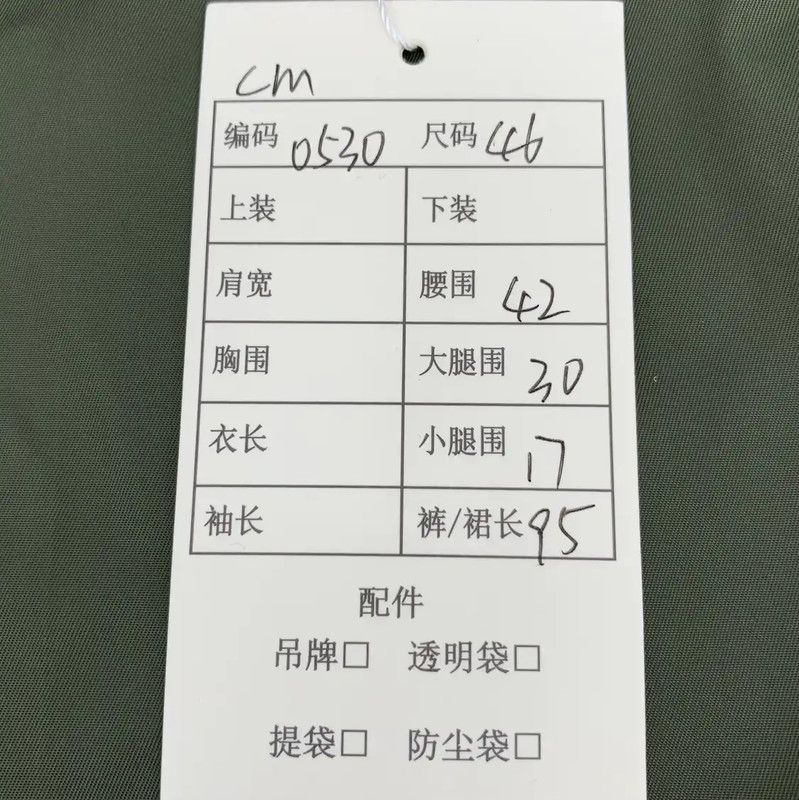 cm
编码 0530 尺码 46
上装 下装
肩宽 腰围 42
胸围 大腿围 30
衣长 小腿围 17
袖长 裤/裙长 95
配件
吊牌□ 透明袋□
提袋□ 防尘袋□